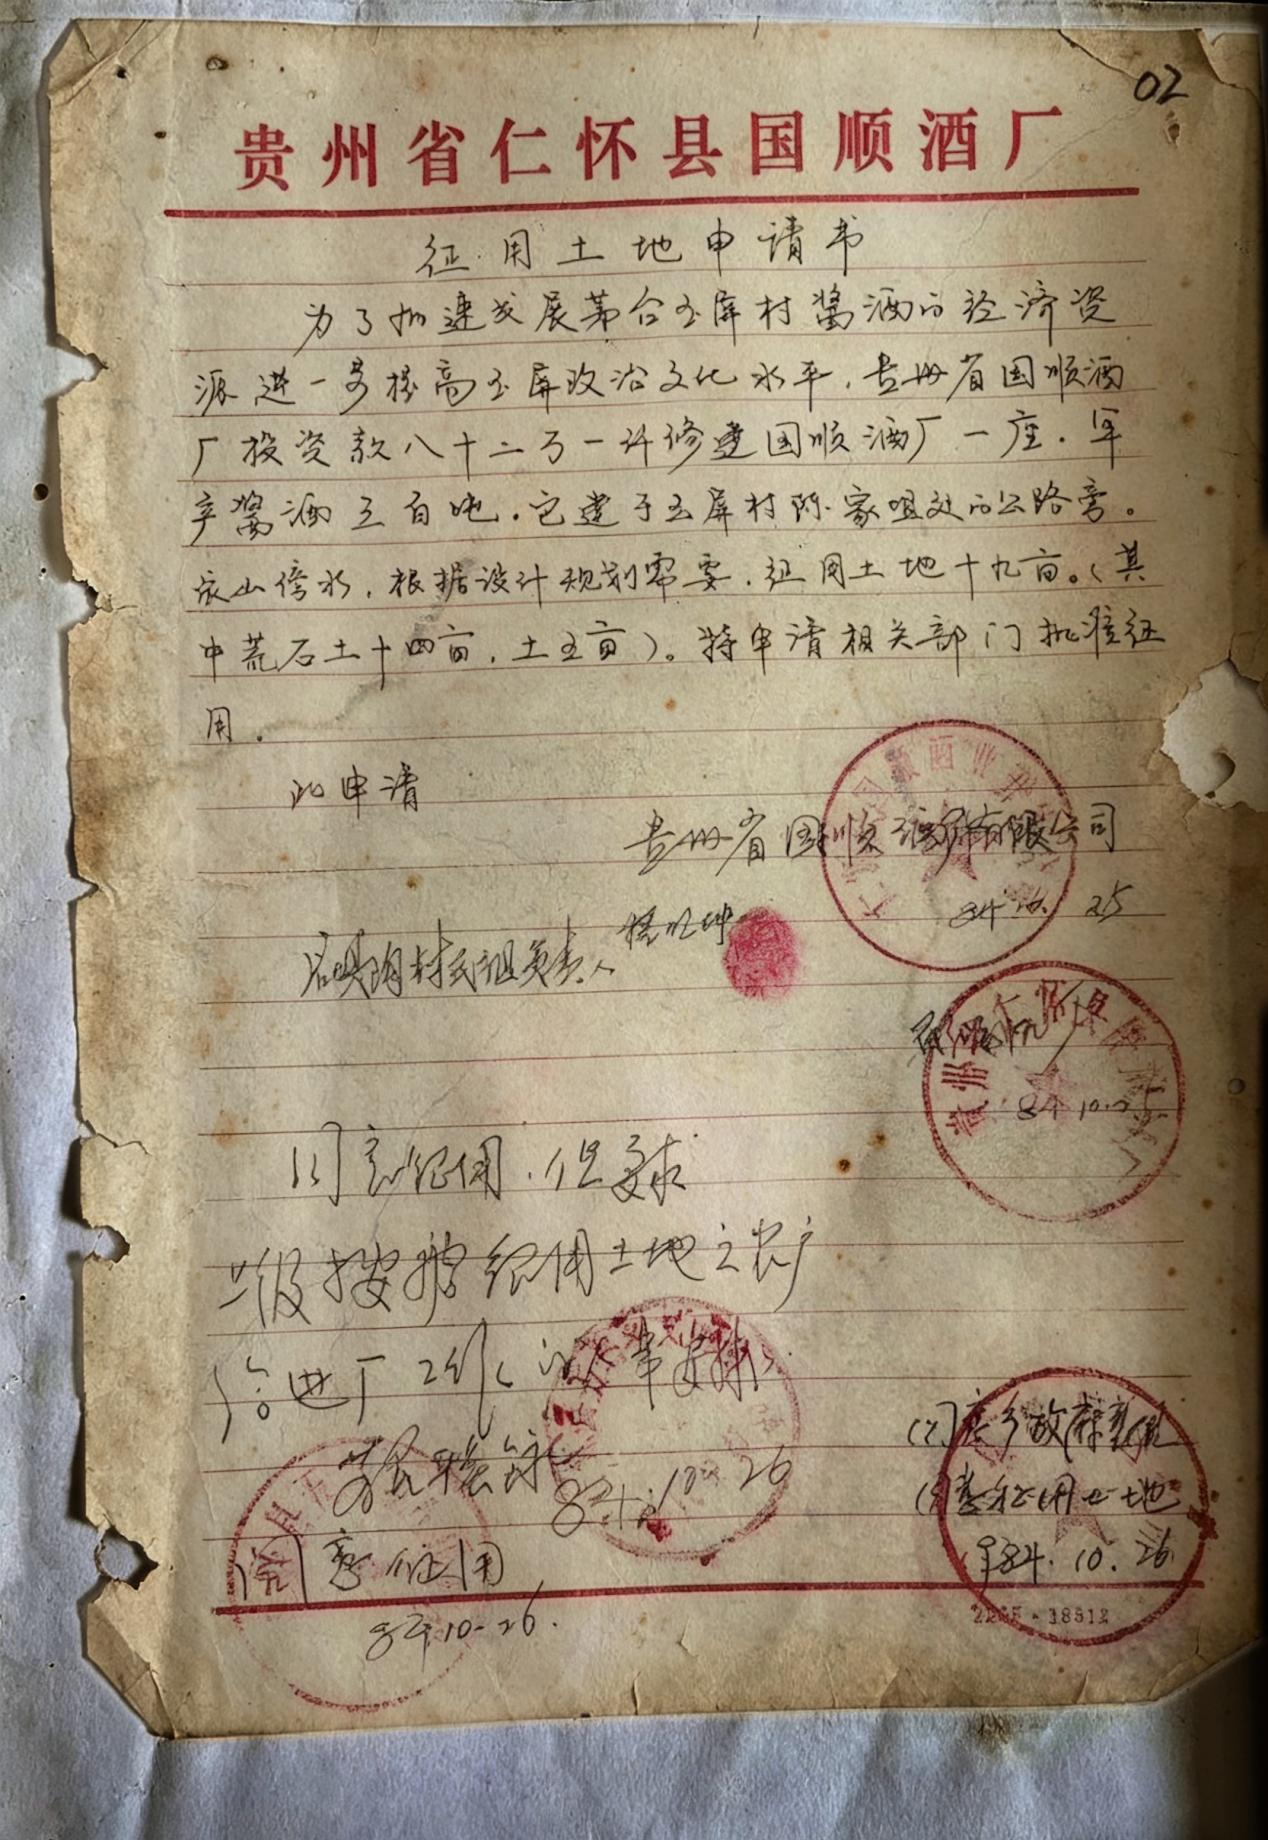 02
贵州省仁怀县国顺酒厂
征用土地申请书
为了加速发展茅台玉屏村酱酒的经济资
源进一步提高玉屏政治文化水平，贵州省国顺酒
厂投资款八十二万一仟修建国顺酒厂一座．年
产酱酒三百吨．它建于玉屏村陈家咀处的公路旁。
依山傍水，根据设计规划需要，征用土地十九亩。（其
中荒石土十四亩，土五亩）。特申请相关部门批准征
用．
此申请
贵州省国顺酒业有限公司
84.10.25
村民组负责人
84.10.25
同意征用．但要求
上级按被征用土地之农户
给进厂工作的人事安排
84.10.26
同意征用
84.10-26.
同意乡政府意见
同意征用土地
84.10.26